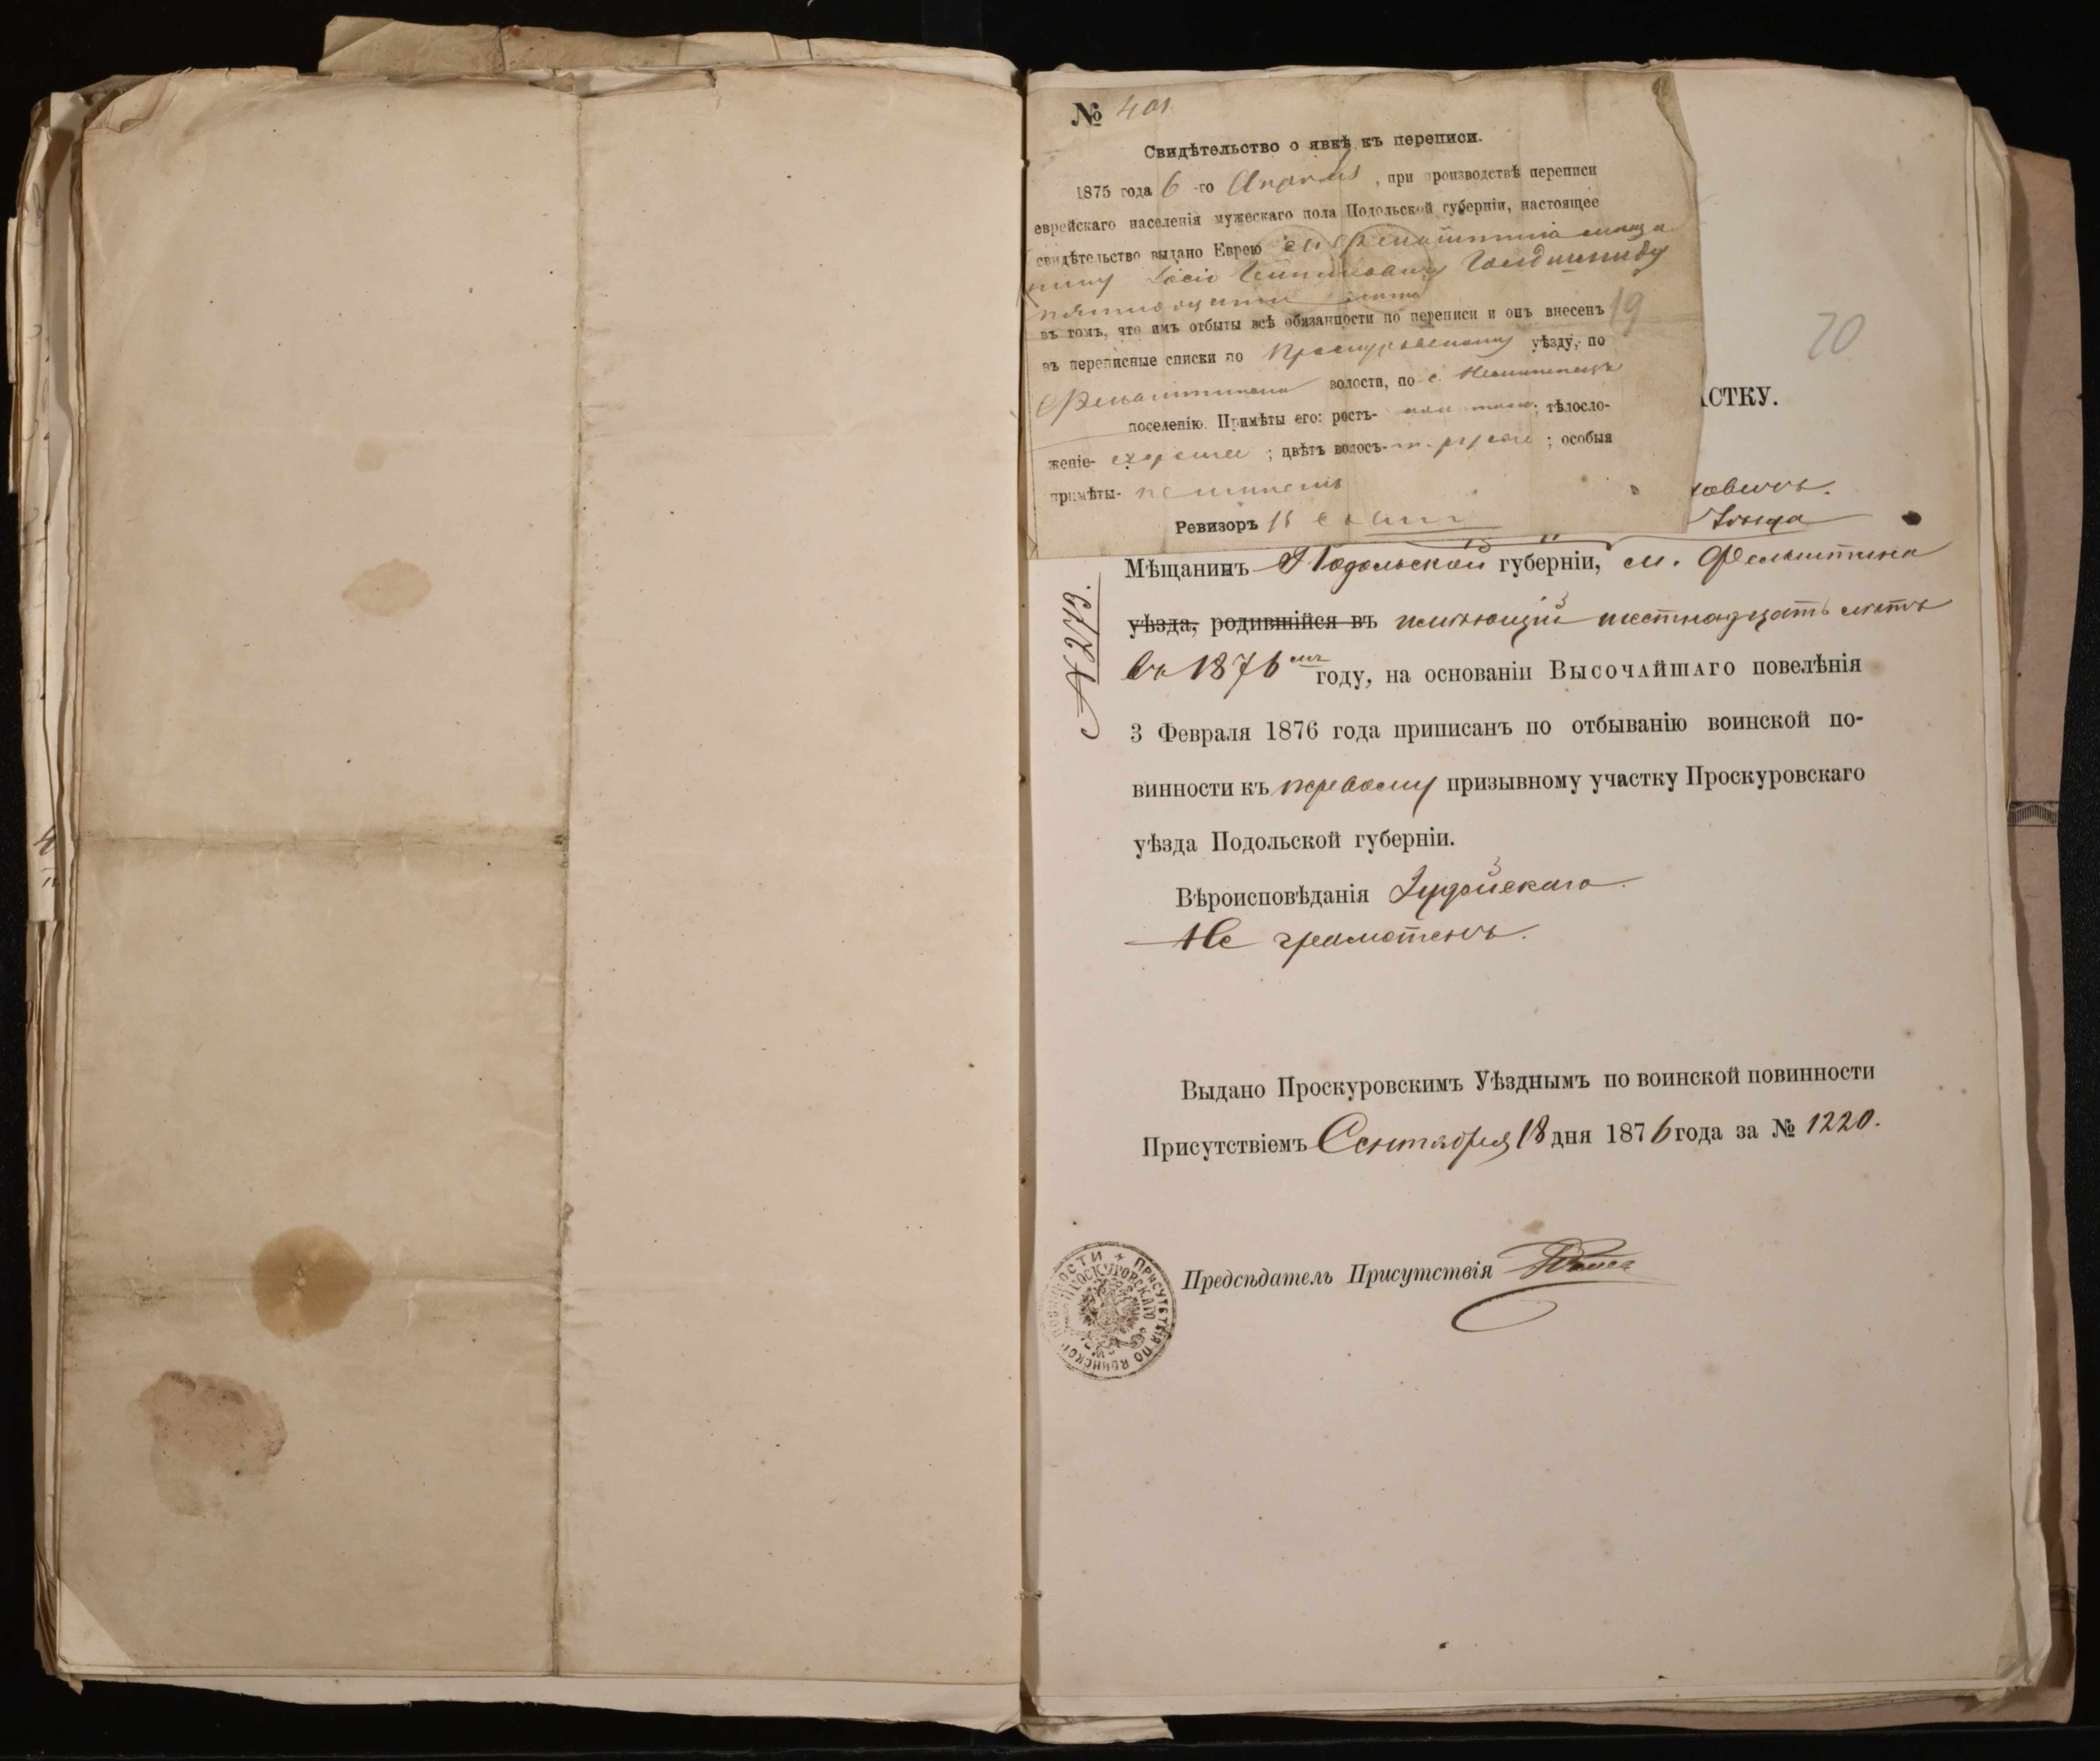 № 401.
Свидѣтельство о явкѣ къ переписи.
1875 года 6-го Апрѣля, при производствѣ переписи
еврейскаго населенія мужескаго пола Подольской губерніи, настоящее
свидѣтельство выдано Еврею м. Фельштина мѣща
нину Іосю
въ томъ, что имъ отбыты всѣ обязанности по переписи и онъ внесенъ
19
въ переписные списки по Проскуровскому уѣзду, по
Фельштинской волости, по с.
поселенію. Примѣты его: ростъ- ; тѣлосло-
женіе- хорошее ; цвѣтъ волосъ- т. русые ; особыя
примѣты-
Ревизоръ
20
АСТКУ.
ковичъ.
Мѣщанинъ Подольской губерніи, м. Фельштина
уѣзда, родившійся въ имѣющій шестнадцать лѣтъ
въ 1876 мъ году, на основаніи Высочайшаго повелѣнія
3 Февраля 1876 года приписанъ по отбыванію воинской по-
винности къ первому призывному участку Проскуровскаго
уѣзда Подольской губерніи.
Вѣроисповѣданія Іудейскаго.
Не грамотенъ.
№ 2073.
Выдано Проскуровскимъ Уѣзднымъ по воинской повинности
Присутствіемъ Сентября 18 дня 1876 года за № 1220.
Предсѣдатель Присутствія
ПРИСУТСТВІЯ ПО ВОИНСКОЙ ПОВИННОСТИ
ПРОСКУРОВСКАГО